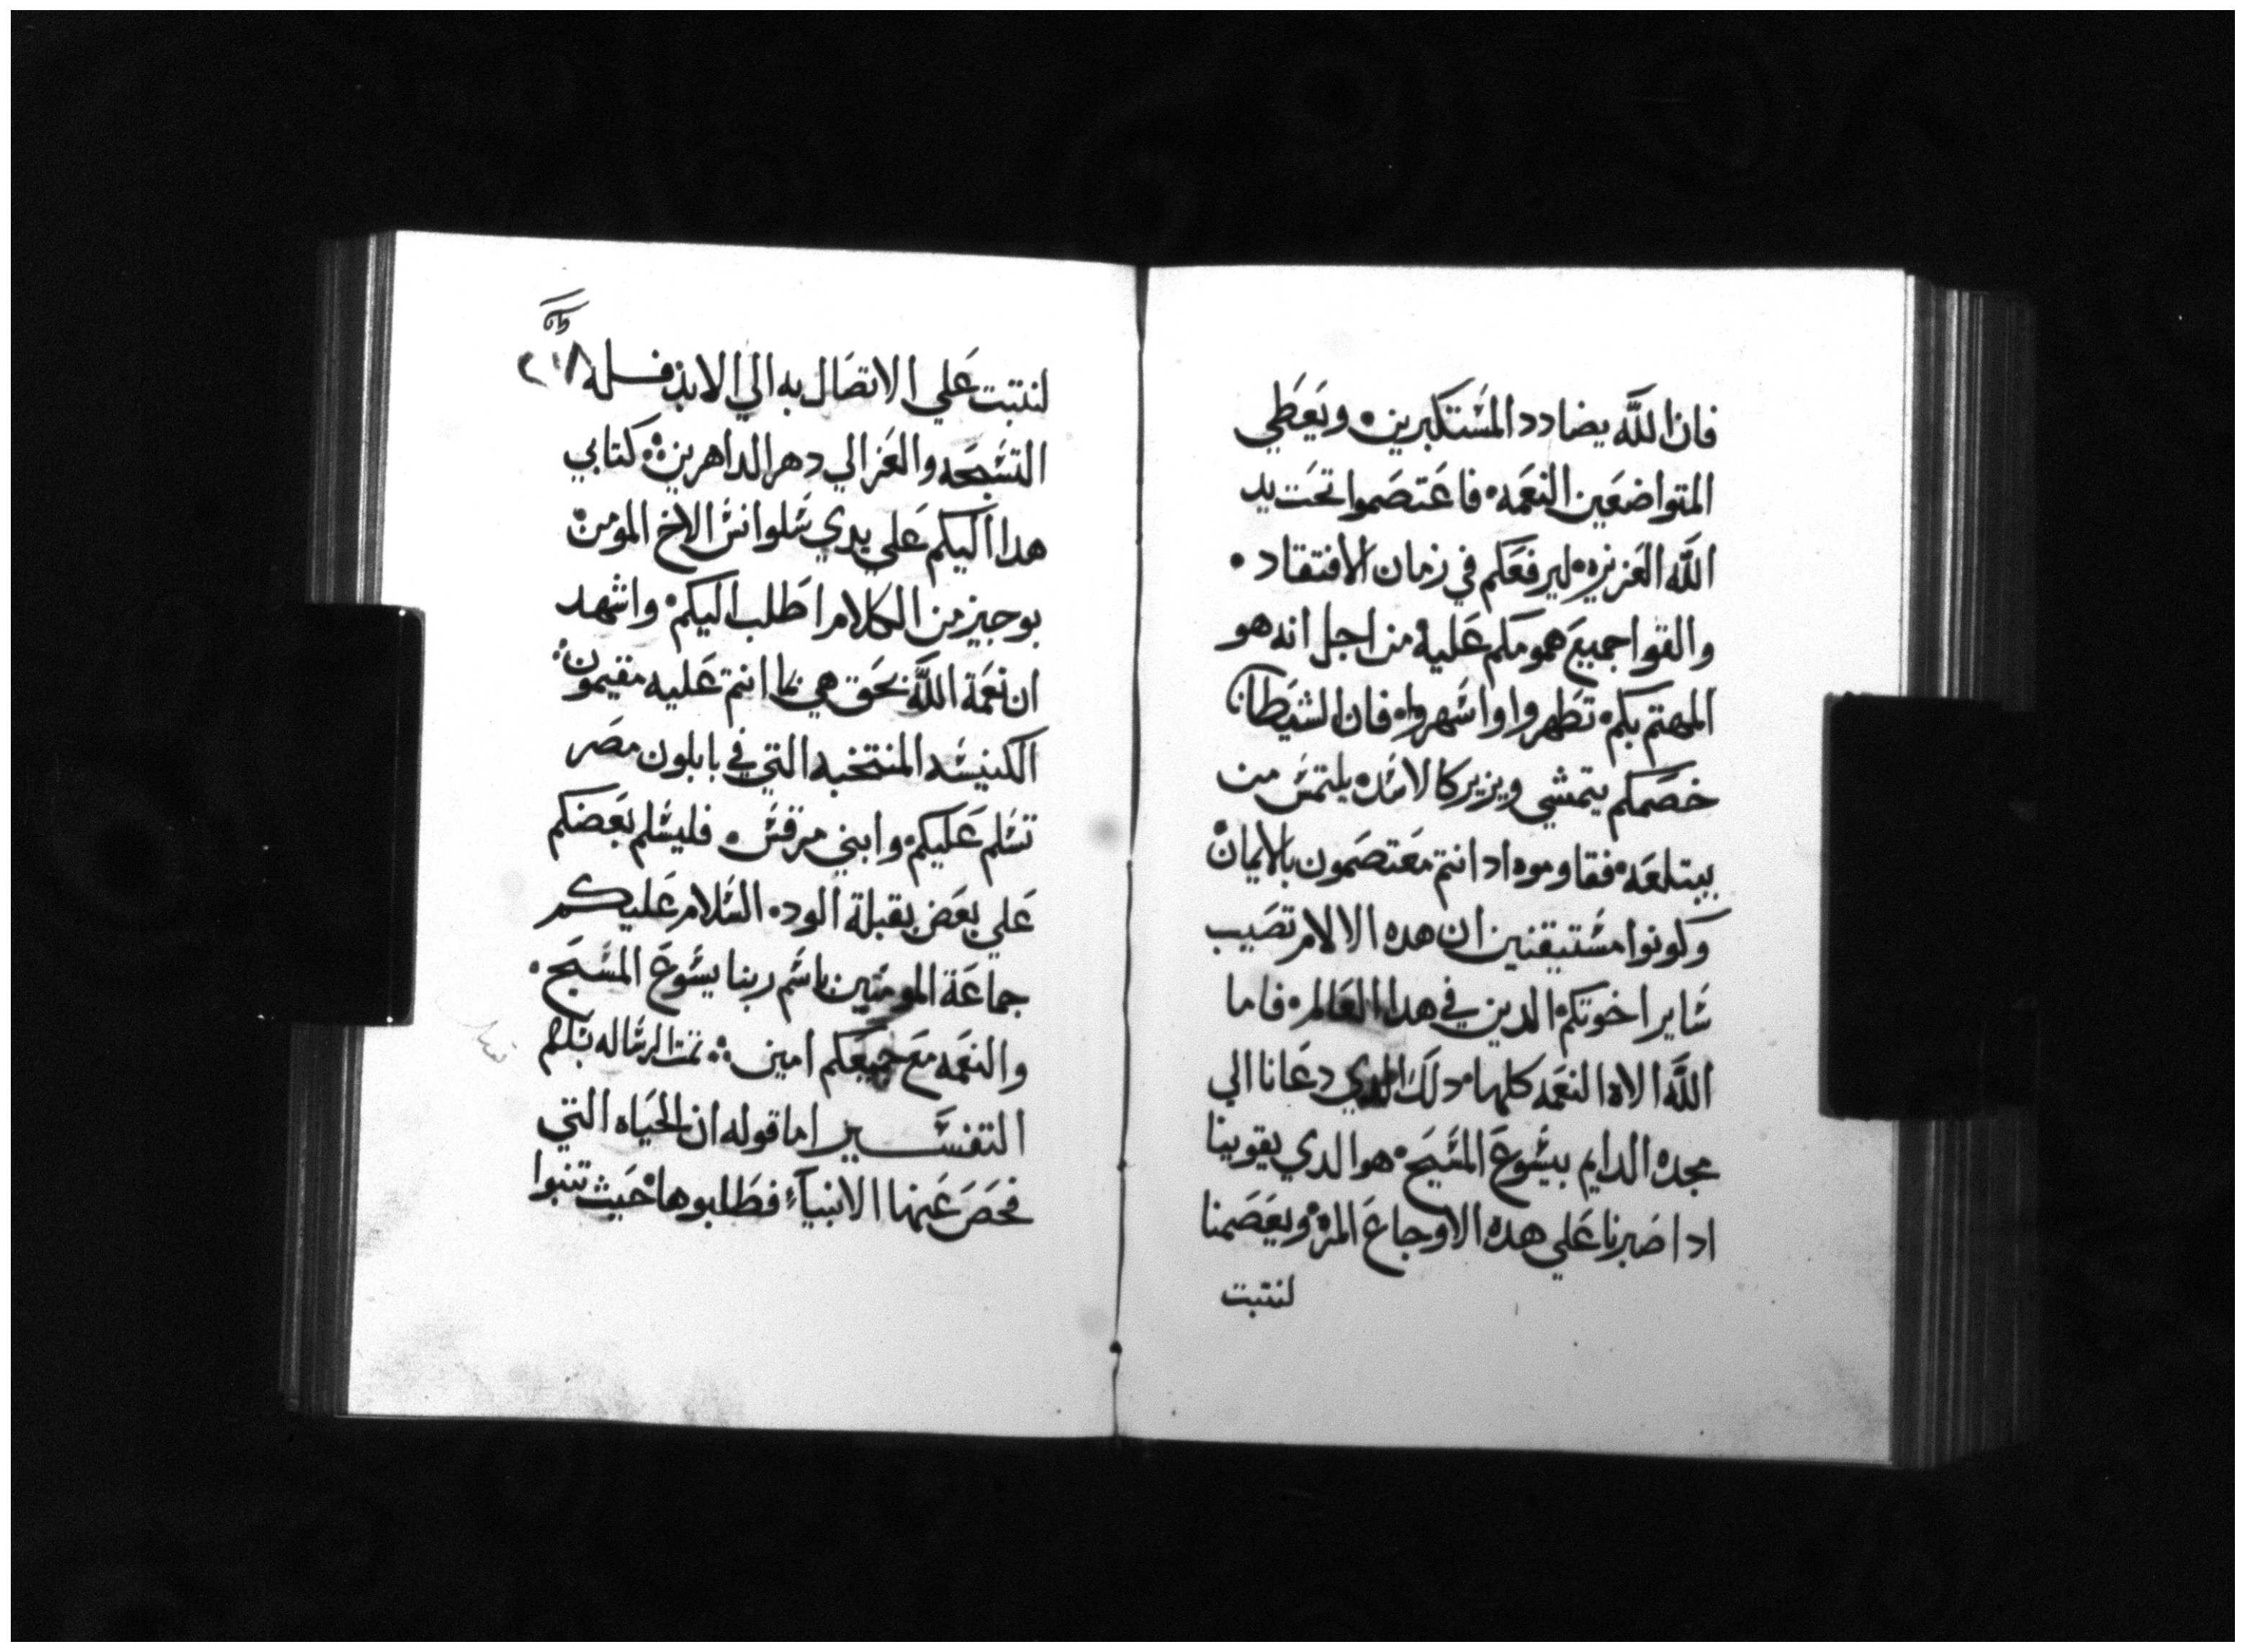 فان الله يضادد المستكبرين ويعطي
المتواضعين النعمه فاعتصموا تحت يد
الله العزيزه ليرفعكم في زمان الافتقاد
والقوا جميع همومكم عليه من اجل انه هو
المهتم بكم تطهروا واشهروا فان الشيطان
خصمكم يتمشي ويزير كالاسد يلتمس من
يبتلعه فقاوموه اد انتم معتصمون بالايمان
وكونوا مستيقنين ان هده الالام تصيب
ساير اخوتكم الدين في هدا العالم فاما
الله الاه النعمه كلها دلك الدي دعانا الي
مجده الدايم بيسوع المسيح هو الدي يقوينا
ادا صبرنا علي هده الاوجاع المره ويعصمنا
لنتبت
٢١٨
لنتبت علي الاتصال به الي الابد فله
التسبحه والعز الي دهر الداهرين كتابي
هدا اليكم علي يدي سلوانس الاخ المومن
بوجيز من الكلام اطلب اليكم واشهد
ان نعمة الله بحق هي ما انتم عليه مقيمون
الكنيسه المنتخبه التي في بابلون مصر
تسلم عليكم وابني مرقس فليسلم بعضكم
علي بعض بقبلة الود السلام عليكم
جماعة المومنين باسم ربنا يسوع المسيح
والنعمه مع جميعكم امين تمت الرساله بسلام
التفسير اما قوله ان الحياه التي
فحص عنها الانبيآء فطلبوها حيث تنبوا